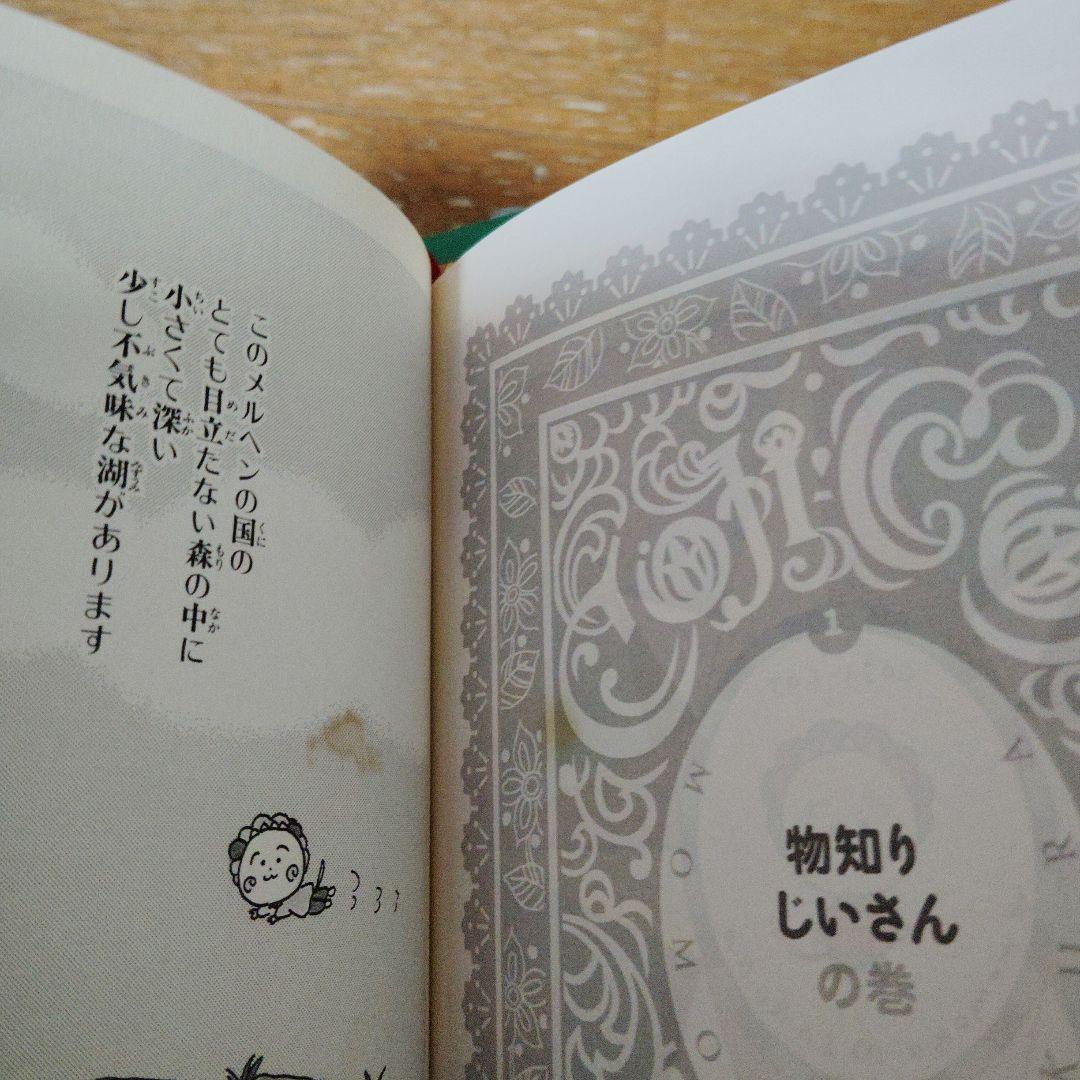 このメルヘンの国の
とても目立たない森の中に
小さくて深い
少し不気味な湖があります
COJI-CO
1
物知り
じいさん
の巻
MOMO
KURA